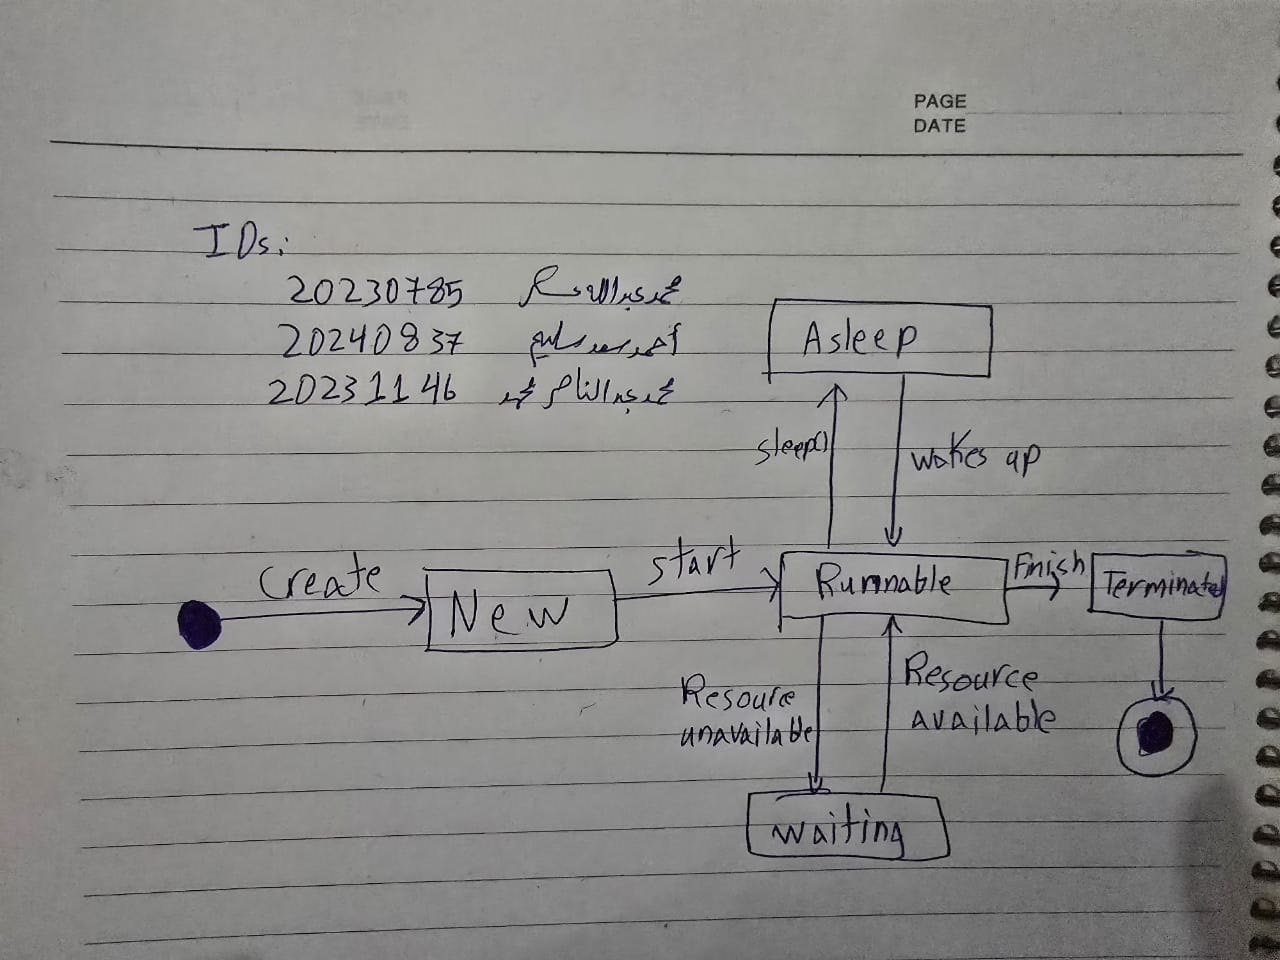 PAGE
DATE
IDs:
20230785 محمد عبدالله
20240837 أحمد سعد سامح
20231146 محمد عبدالناصر محمد
Asleep
sleep()
wakes up
Create
New
start
Runnable
Finish
Terminate
Resource
unavailable
Resource
available
waiting